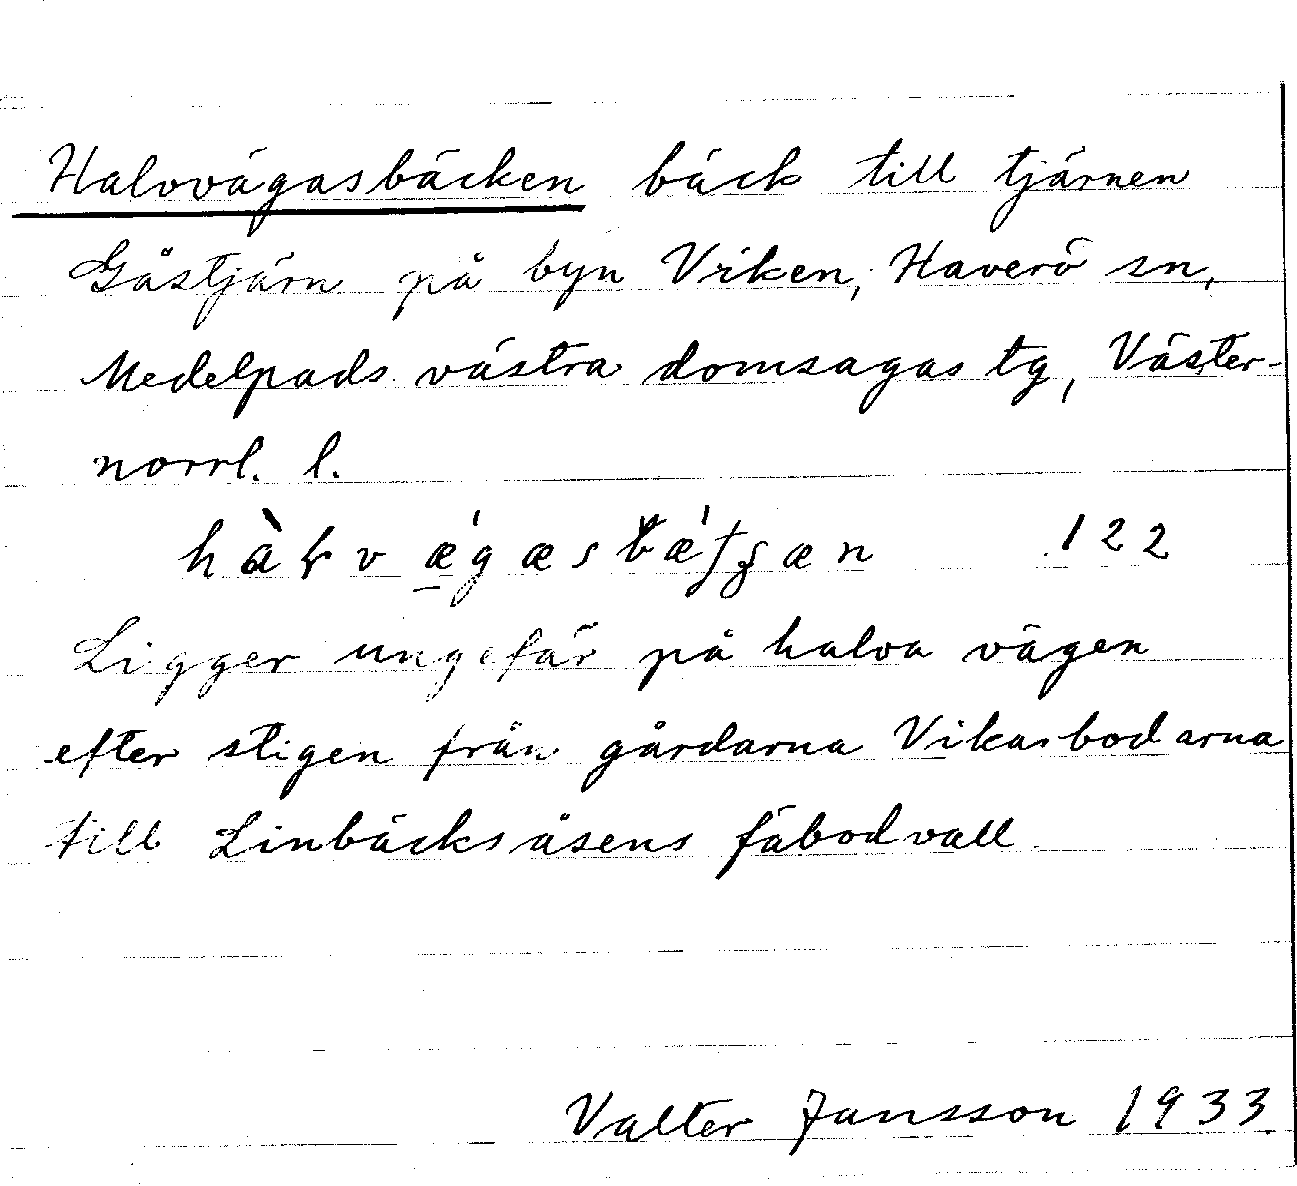 Halvvägasbäcken bäck till tjärnen
Gåstjärn på byn Viken, Haverö sn,
Medelpads västra domsagas tg, Väster-
norrl. l.
122
Ligger ungefär på halva vägen
efter stigen från gårdarna Vikarbodarna
till Linbäcksåsens fäbodvall
Valter Jansson 1933.